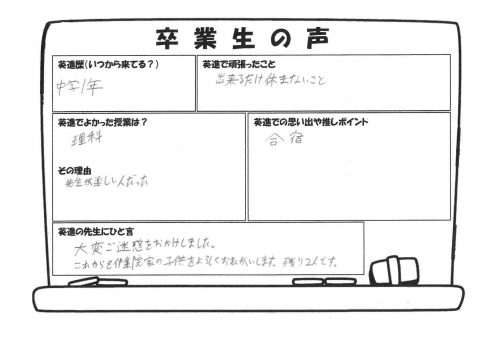 卒業生の声
英進歴(いつから来てる?)
中学1年
英進で頑張ったこと
出来るだけ休まないこと
英進でよかった授業は?
理科
その理由
先生が楽しい人だった
英進での思い出や推しポイント
合宿
英進の先生にひと言
大変ご迷惑をおかけしました。
これからも伊集院家の子供をよろしくおねがいします。残り2人です。